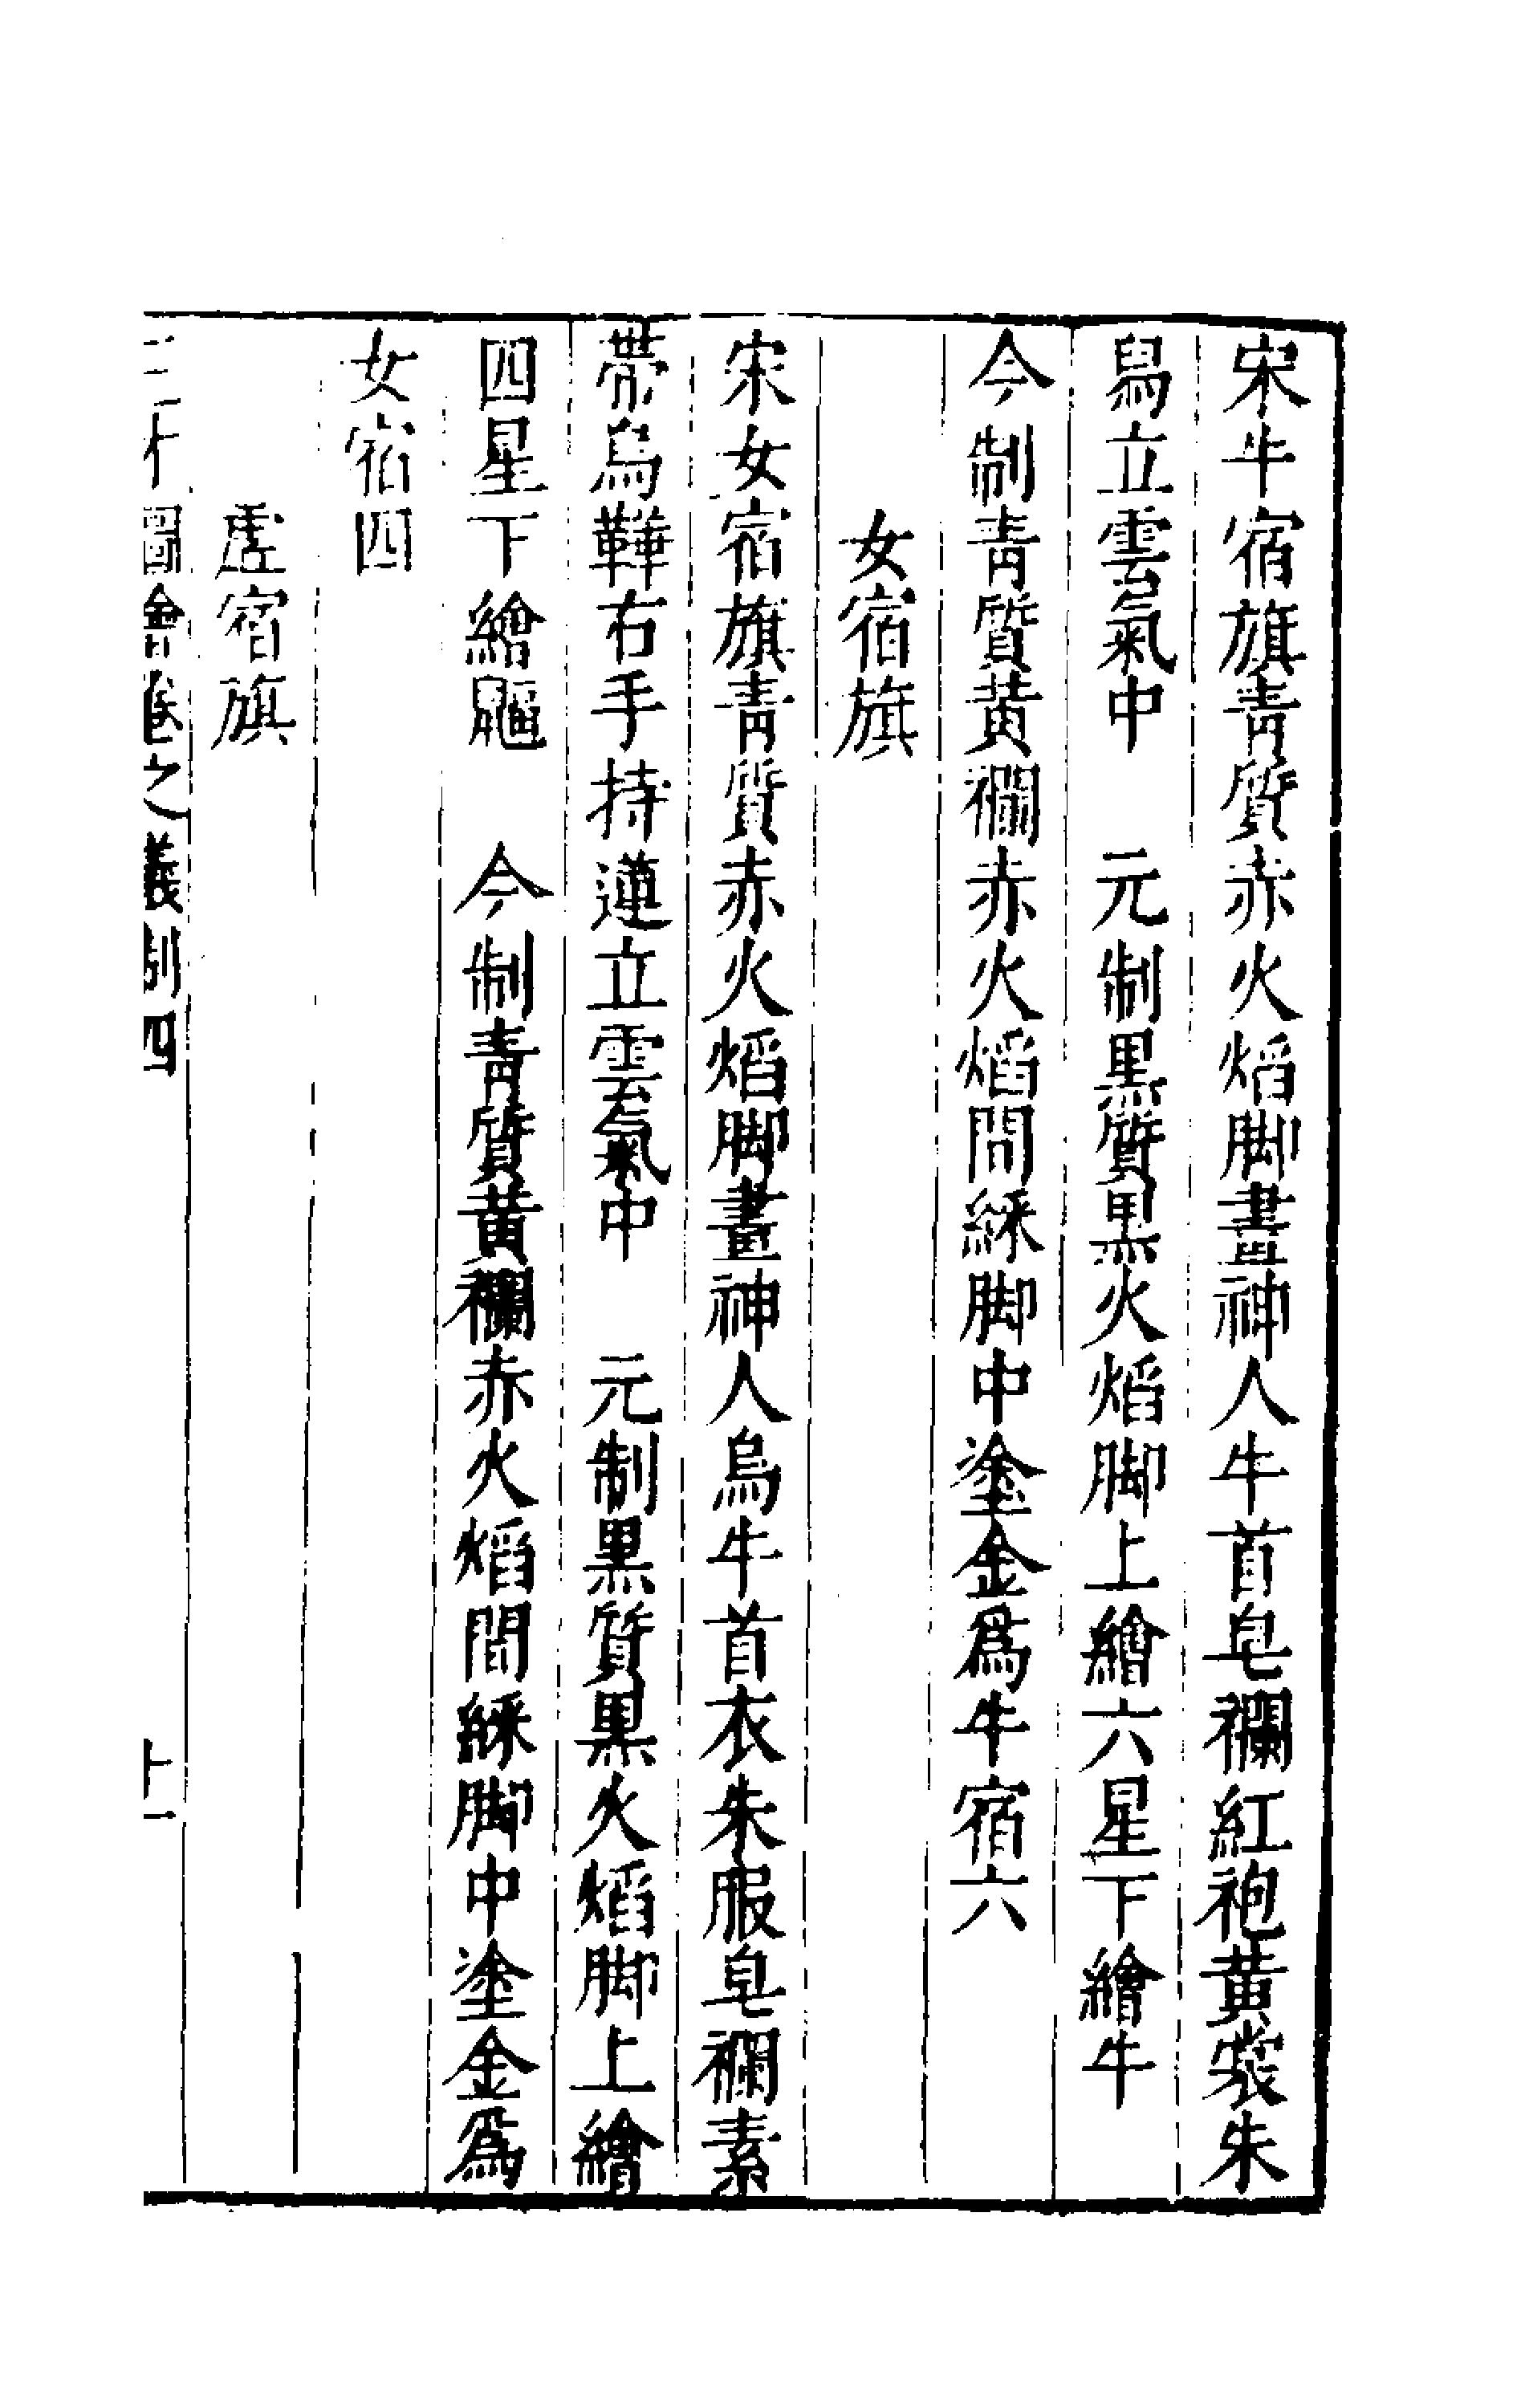 宋牛宿旗青質赤火焰脚畫神人牛首皂襴紅袍黃裳朱
舄立雲氣中　元制黑質黑火焰脚上繪六星下繪牛
今制青質黃襴赤火焰間綵脚中塗金爲牛宿六
女宿旗
宋女宿旗青質赤火焰脚畫神人烏牛首衣朱服皂襴素
帶烏鞾右手持蓮立雲氣中　元制黑質黑火焰脚上繪
四星下繪　今制青質黃襴赤火焰間綵脚中塗金爲
女宿四
虛宿旗
三才圖會卷之儀制四　十一